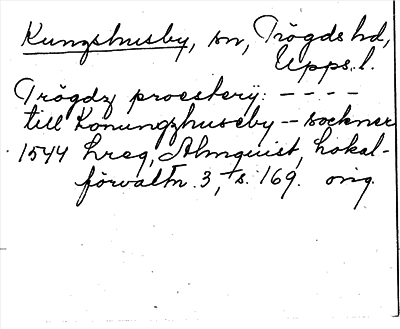 Kungshusby, sn, Trögds hd,
Upps. l.
Trögdz proesterij: - - - -
till Konungzhuseby - sockner
1544 hreg, Almquist, Lokal-
förvaltn. 3, s. 169. orig.